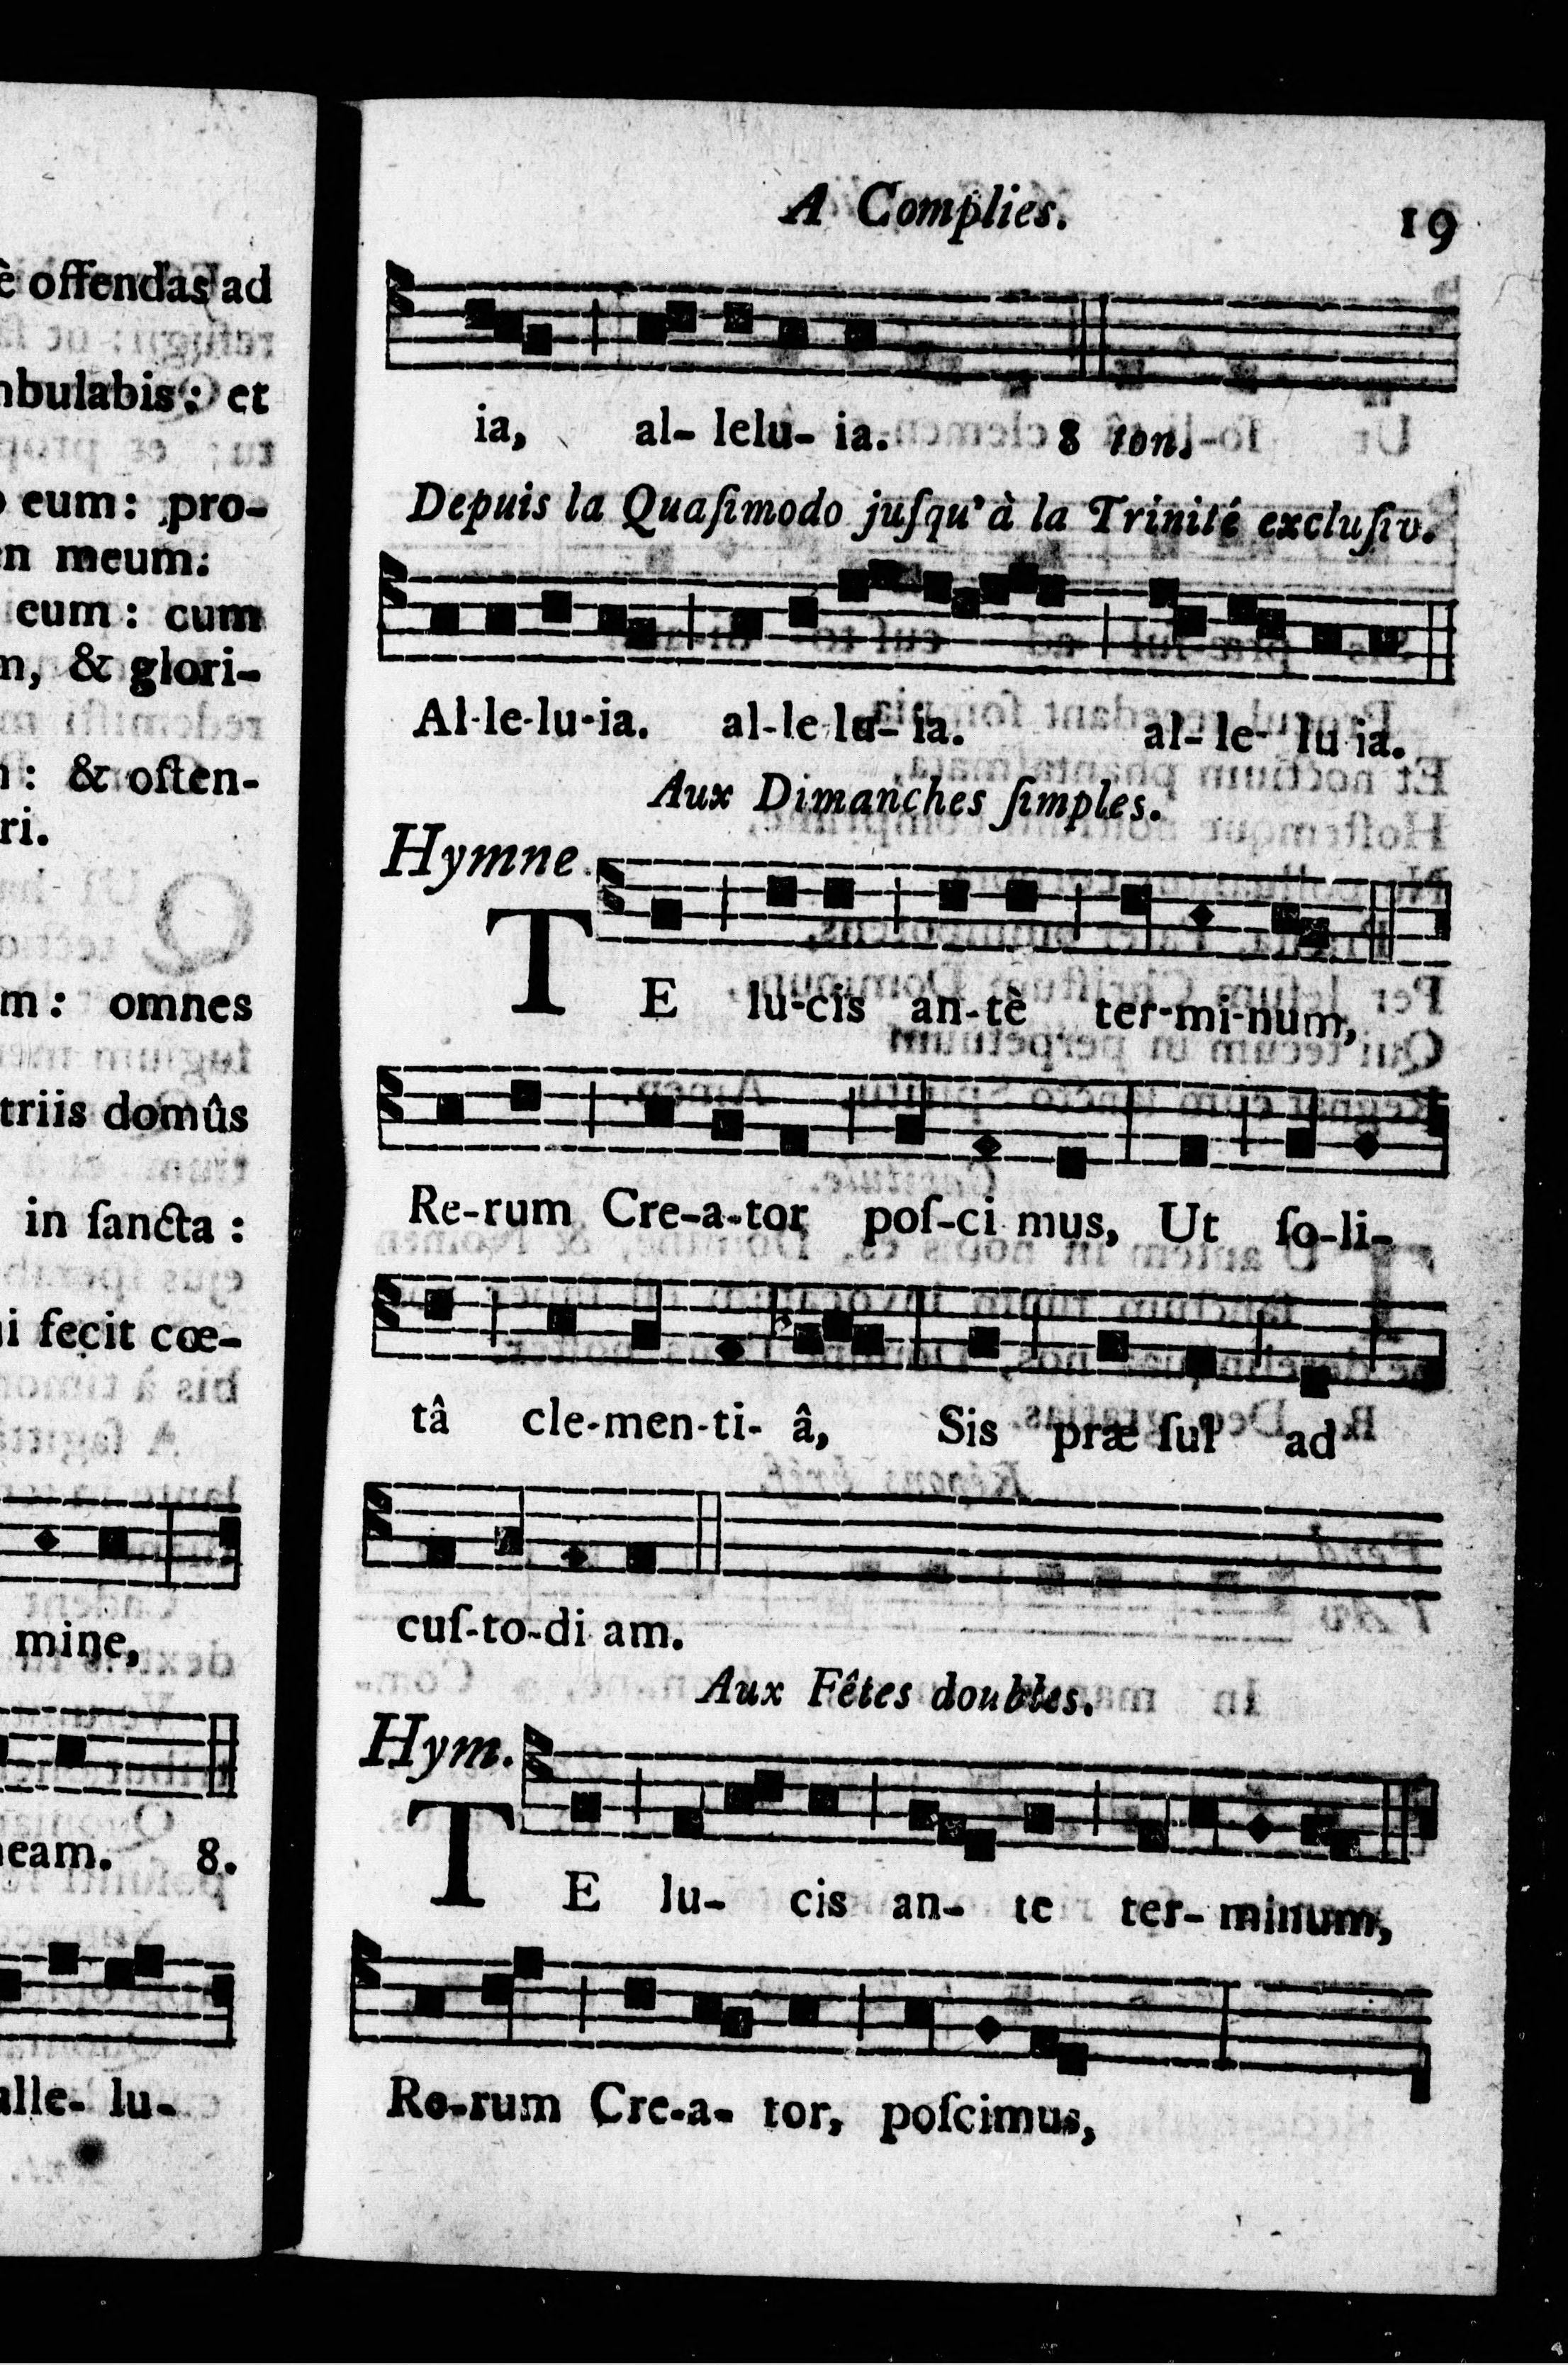 è offendas ad
mbulabis: et
o eum: pro-
en meum:
eum: cum
m, & glori-
n: & oſten-
ri.
m: omnes
triis domûs
in ſancta:
ui fecit cœ-
mine,
neam. 8.
alle- lu-
A Complies. 19
ia, al- lelu- ia. 8 ton.
Depuis la Quaſimodo juſqu'à la Trinité excluſiv.
Al-le-lu-ia. al-le-lu- ia. al- le- lu ia.
Aux Dimanches ſimples.
Hymne.
TE lu-cis an-tè ter-mi-num,
Re-rum Cre-a-tor poſ-ci mus, Ut ſo-li-
tâ cle-men-ti- â, Sis præ ſul ad
cuſ-to-di am.
Aux Fêtes doubles.
Hym.
TE lu- cis an- te ter- minum,
Re-rum Cre-a- tor, poſcimus,